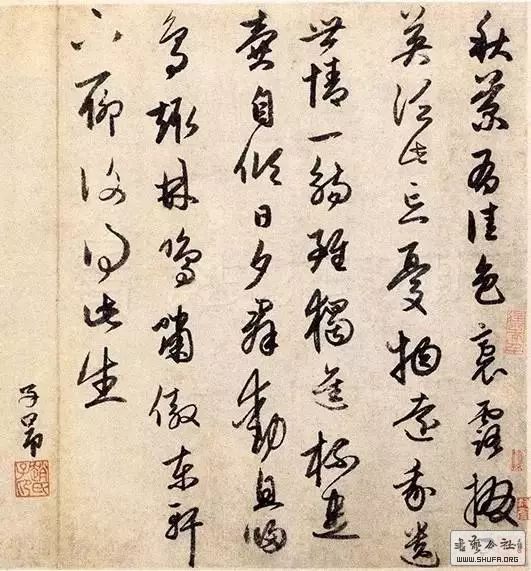 秋菊有佳色裛露掇
英泛此忘憂物遠我遺
世情一觴雖獨進杯盡
壺自傾日夕群動息歸
鳥趨林鳴嘯傲東軒
下聊復得此生
子昂
趙氏子昂
書藝公社
WWW.SHUFA.ORG